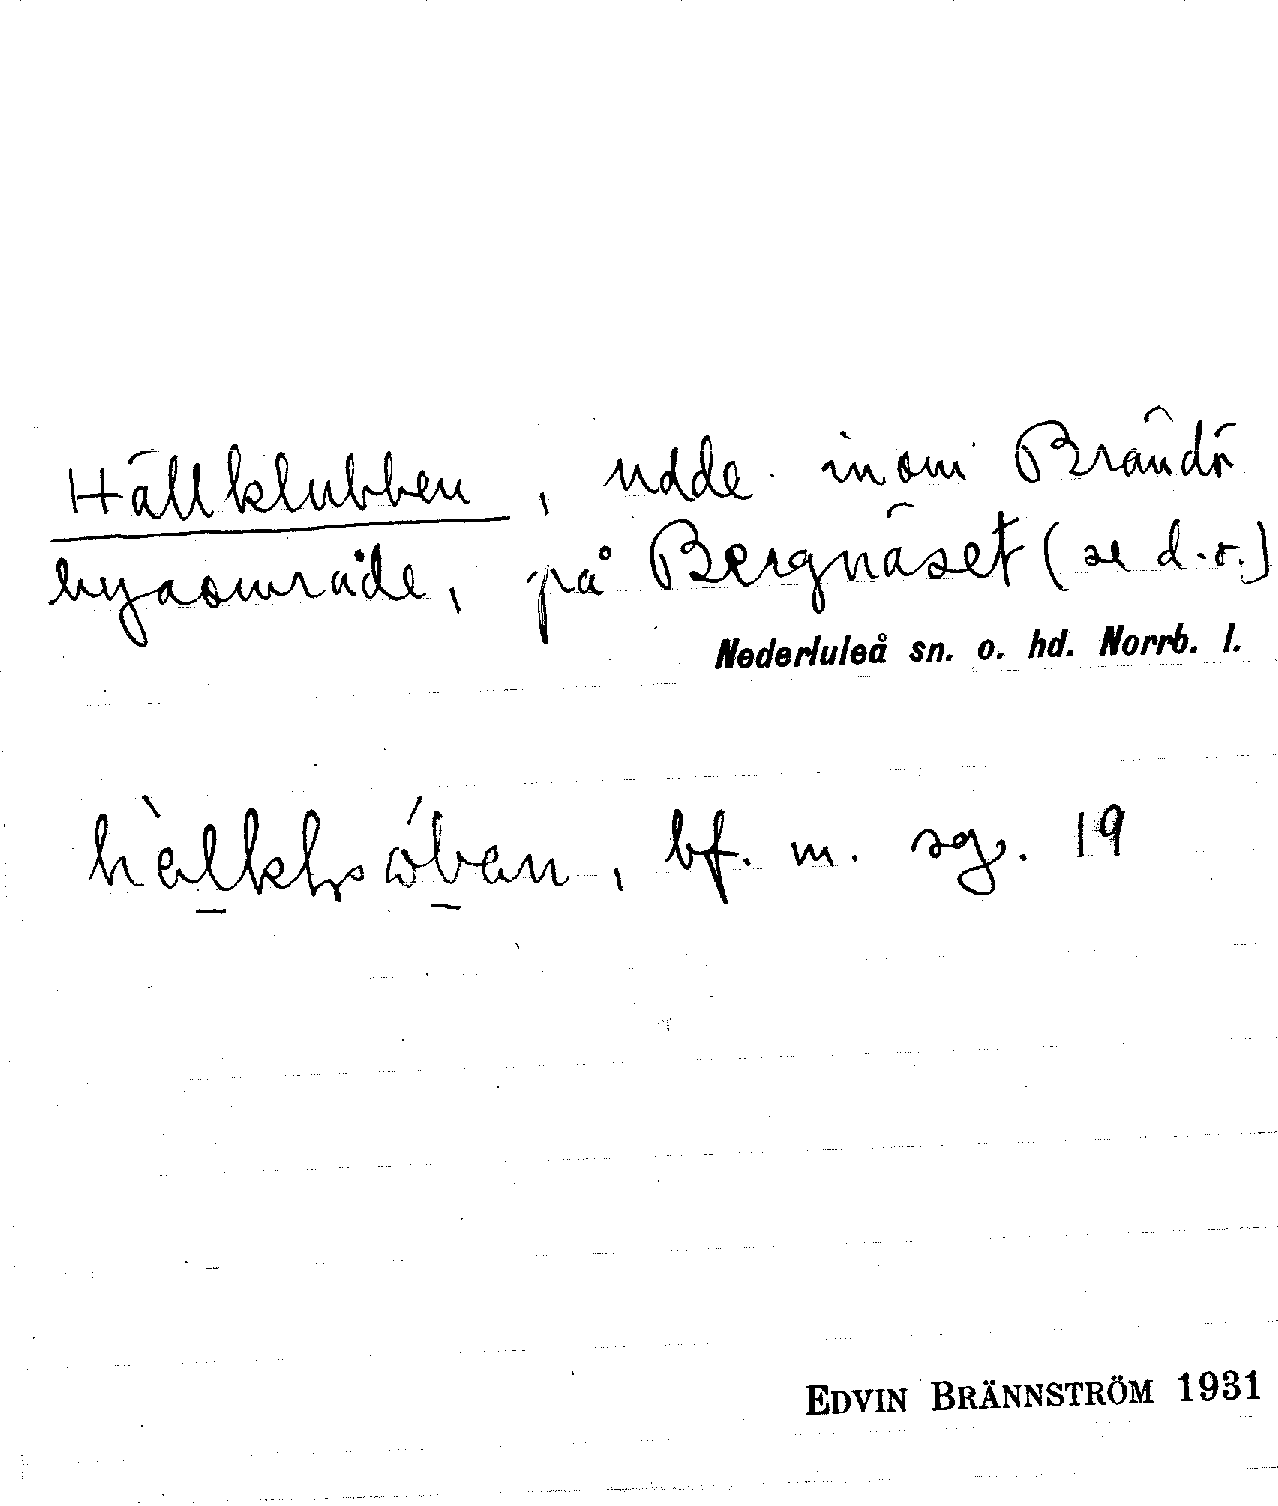 Hällklubben, udde inom Brändö
byaområde, på Bergnäset (se d.o.)
Nederluleå sn. o. hd. Norrb. l.
bf. m. sg. 19
EDVIN BRÄNNSTRÖM 1931